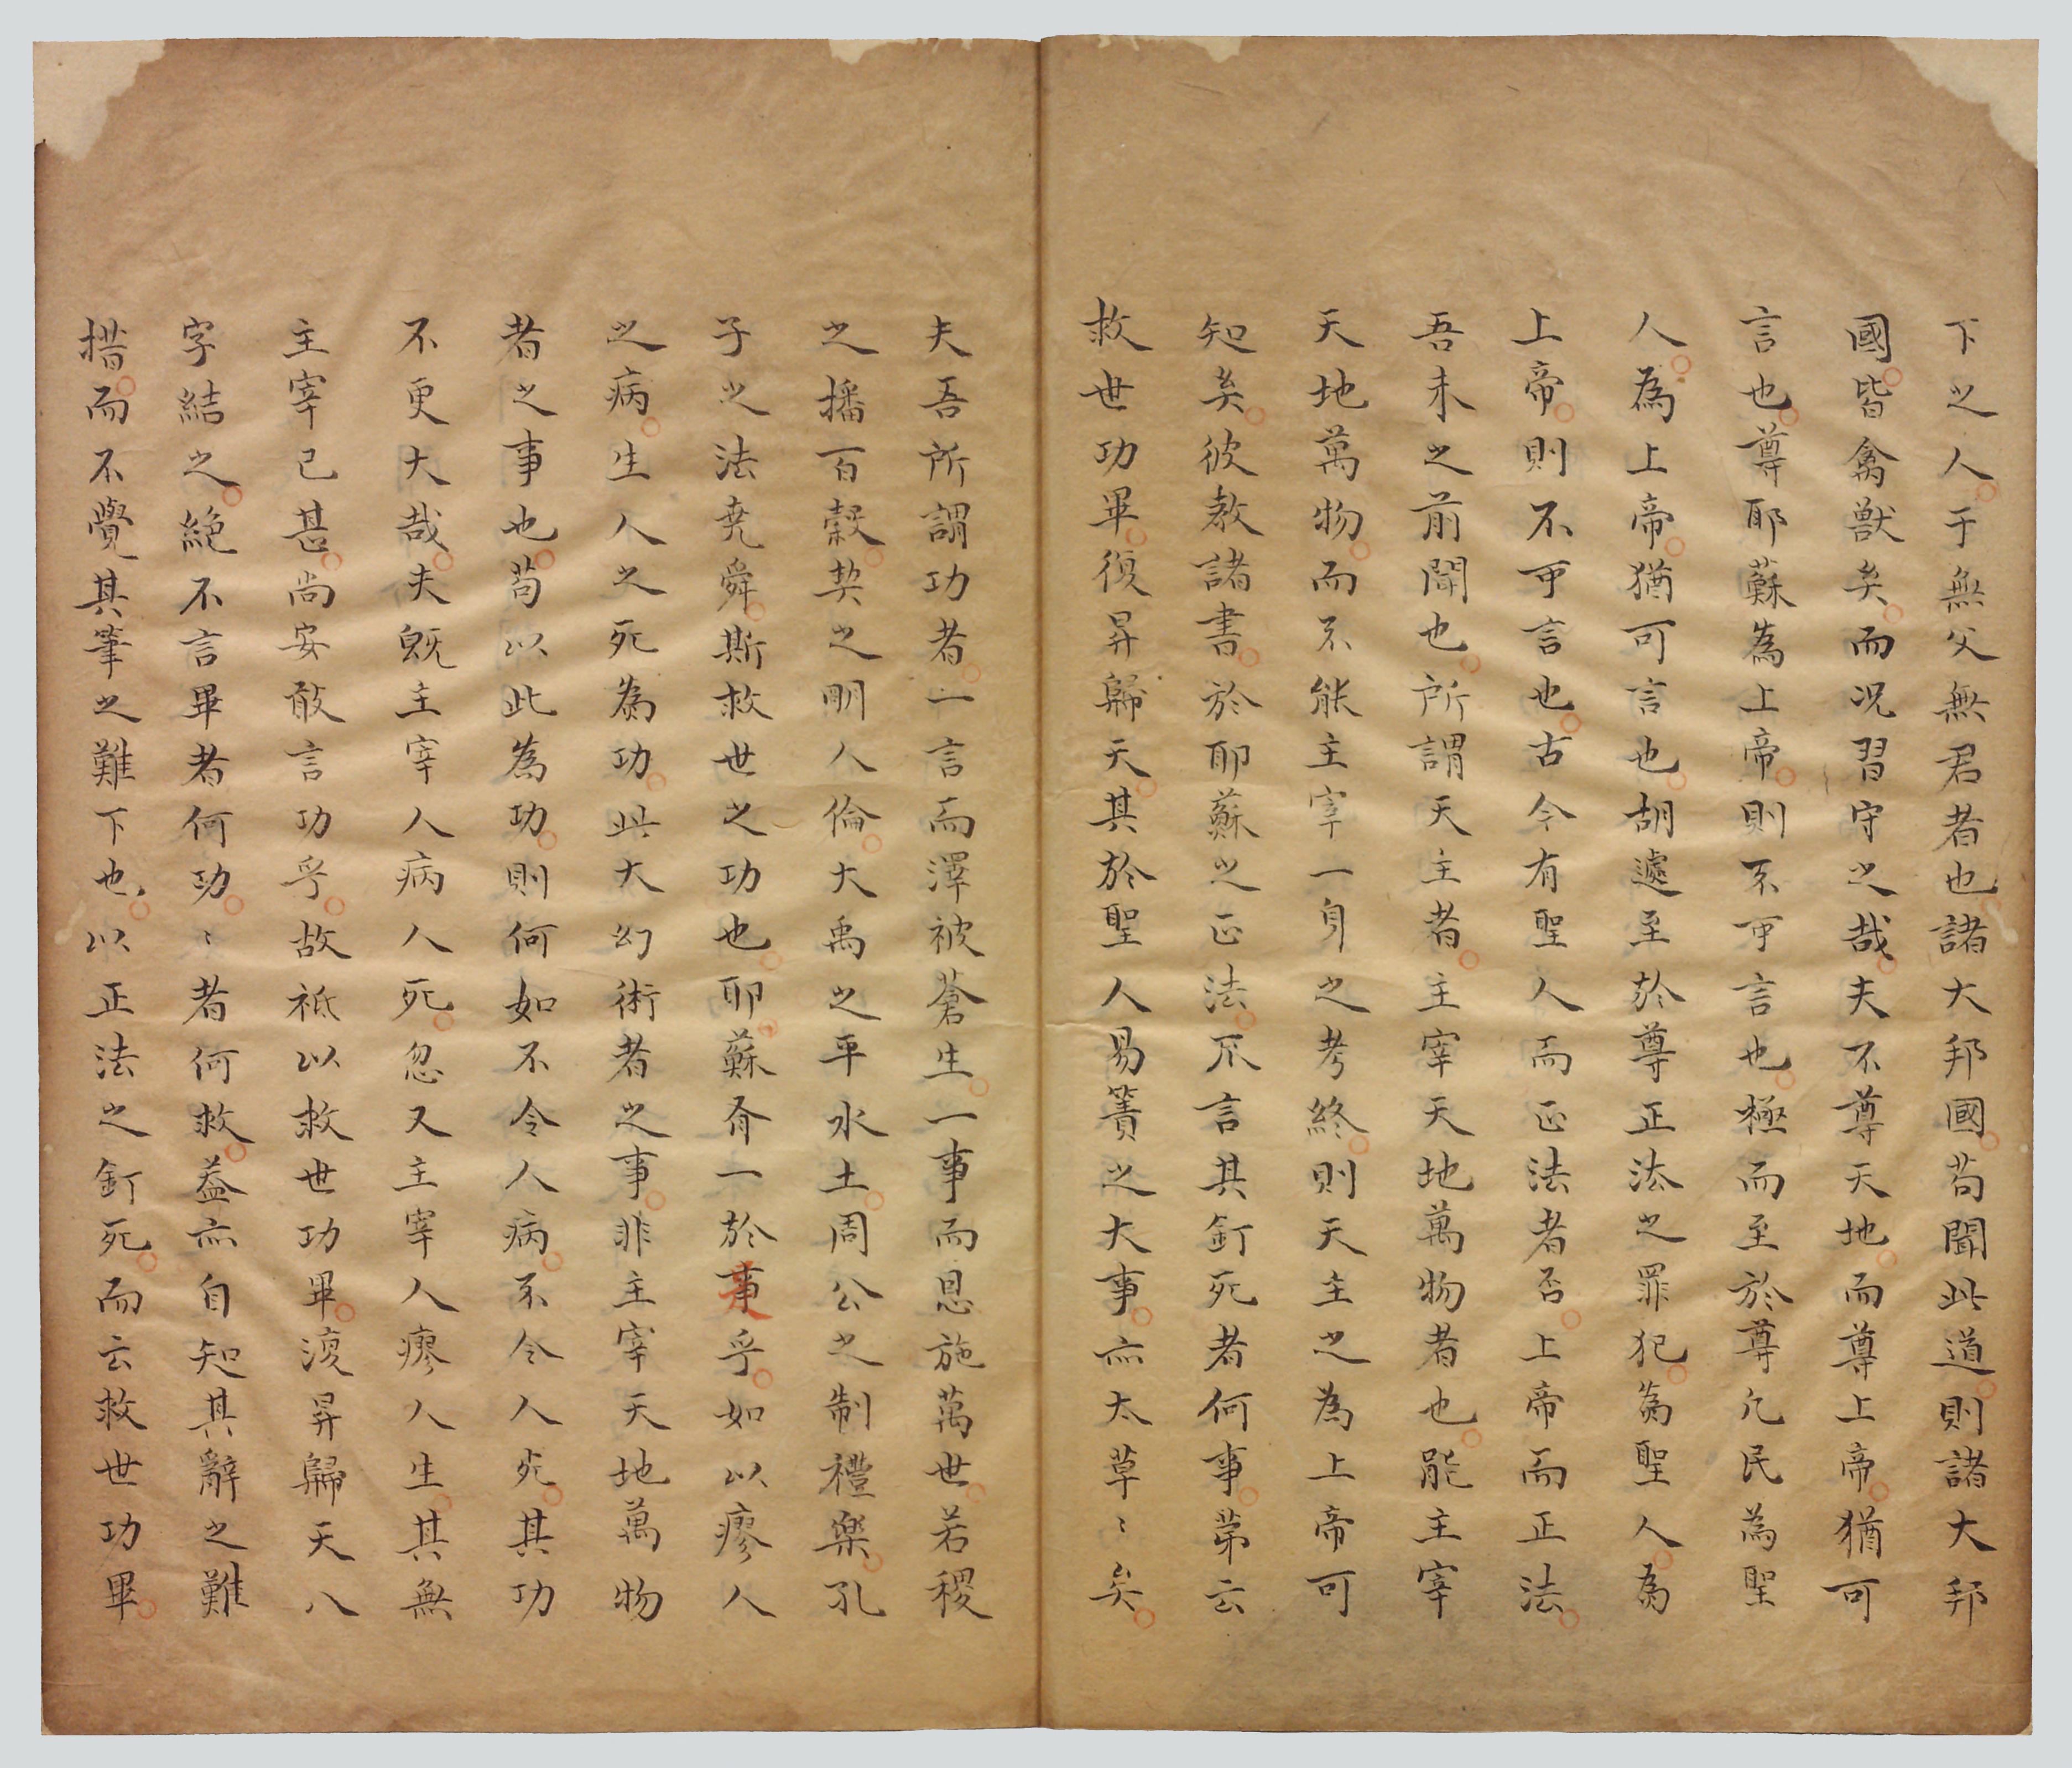 下之人于無父無君者也諸大邦國苟聞此道則諸大邦
國皆禽獸矣而况習守之哉夫不尊天地而尊上帝猶可
言也尊耶蘇為上帝則不可言也極而至於尊凢民為聖
人為上帝猶可言也胡遽至於尊正法之罪犯為聖人為
上帝則不可言也古今有聖人而正法者否上帝而正法
吾未之前聞也所謂天主者主宰天地萬物者也能主宰
天地萬物而不能主宰一身之考終則天主之為上帝可
知矣彼教諸書於耶蘇之正法不言其釘死者何事苐云
救世功畢復昇歸天其於聖人易簀之大事亦太草〻矣
夫吾所謂功者一言而澤被蒼生一事而恩施萬世若稷
之播百穀契之明人倫大禹之平水土周公之制禮樂孔
子之法堯舜斯救世之功也耶蘇有一於事乎如以瘳人
之病生人之死為功此大幻術者之事非主宰天地萬物
者之事也苟以此為功則何如不令人病不令人死其功
不更大哉夫既主宰人病人死忽又主宰人瘳人生其無
主宰已甚尚安敢言功乎故祇以救世功畢復昇歸天八
字結之絕不言畢者何功〻者何救益亦自知其辭之難
措而不覺其筆之難下也以正法之釘死而云救世功畢